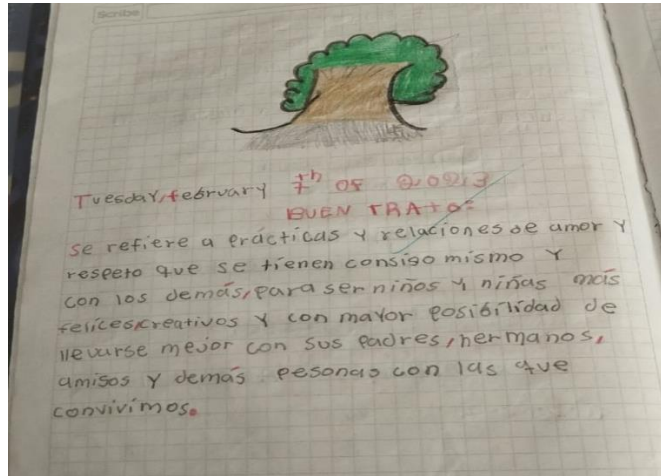 Scribe
Tuesday, february 7th of 2,023
BUEN TRATO:
se refiere a prácticas y relaciones de amor y
respeto que se tienen consigo mismo y
con los demás, para ser niños y niñas más
felices, creativos y con mayor posibilidad de
llevarse mejor con sus padres, hermanos,
amigos y demás pesonas con las que
convivimos.